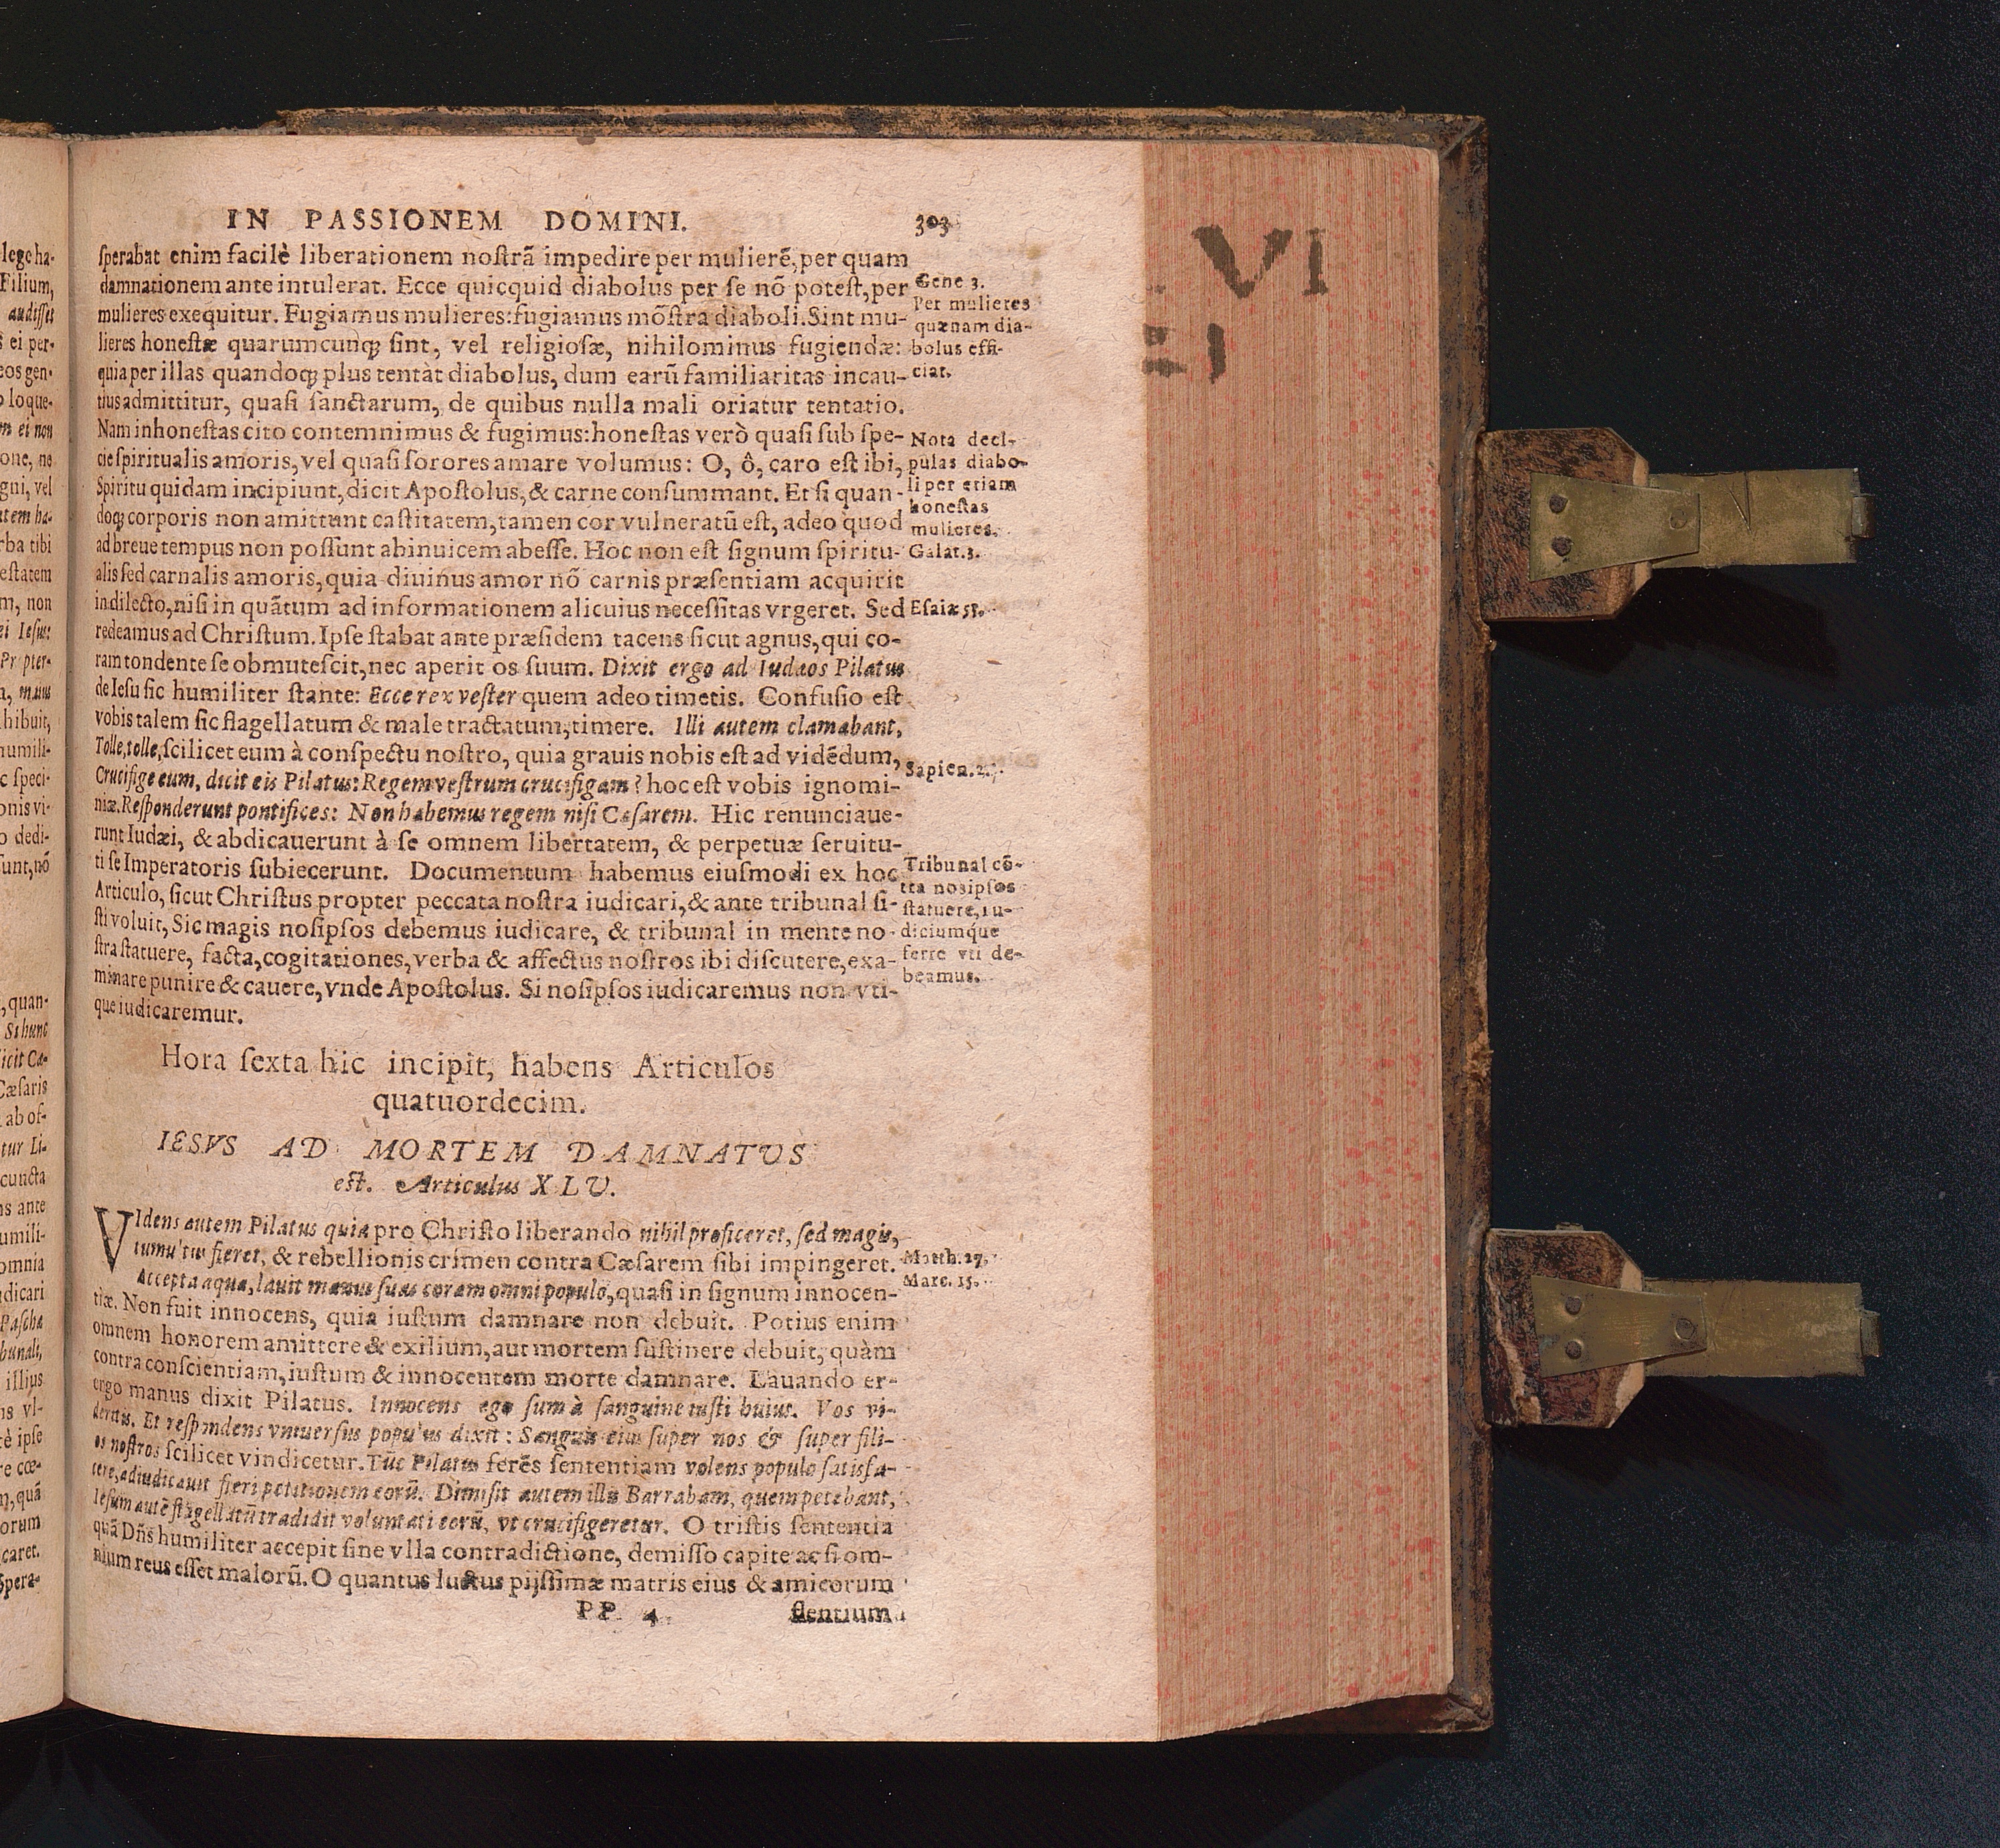 IN PASSIONEM DOMINI. 303
ſperabat enim facilè liberationem noſtrã impedire per mulierẽ, per quam
damnationem ante intulerat. Ecce quicquid diabolus per ſe nõ poteſt, per
mulieres exequitur. Fugiamus mulieres: fugiamus mõſtra diaboli. Sint mu-
lieres honeſtæ quarumcunq; ſint, vel religioſæ, nihilominus fugiendæ:
quia per illas quandoq; plus tentàt diabolus, dum earũ familiaritas incau-
tius admittitur, quaſi ſanctarum, de quibus nulla mali oriatur tentatio.
Nam inhoneſtas cito contemnimus & fugimus: honeſtas verò quaſi ſub ſpe-
cie ſpiritualis amoris, vel quaſi ſorores amare volumus: O, ô, caro eſt ibi,
Spiritu quidam incipiunt, dicit Apoſtolus, & carne conſummant. Et ſi quan-
doq; corporis non amittunt caſtitatem, tamen cor vulneratũ eſt, adeo quod
ad breue tempus non poſſunt abinuicem abeſſe. Hoc non eſt ſignum ſpiritu-
alis ſed carnalis amoris, quia diuinus amor nõ carnis præſentiam acquirit
in dilecto, niſi in quãtum ad informationem alicuius neceſſitas vrgeret. Sed
redeamus ad Chriſtum. Ipſe ſtabat ante præſidem tacens ſicut agnus, qui co-
ram tondente ſe obmuteſcit, nec aperit os ſuum. Dixit ergo ad Iudæos Pilatus
de Ieſu ſic humiliter ſtante: Ecce rex veſter quem adeo timetis. Confuſio eſt
vobis talem ſic flagellatum & male tractatum, timere. Illi autem clamabant,
Tolle, tolle, ſcilicet eum à conſpectu noſtro, quia grauis nobis eſt ad vidẽdum,
Crucifige eum, dicit eis Pilatus: Regem veſtrum crucifigam? hoc eſt vobis ignomi-
niæ. Reſponderunt pontifices: Non habemus regem niſi Cæſarem. Hic renunciaue-
runt Iudæi, & abdicauerunt à ſe omnem libertatem, & perpetuæ ſeruitu-
ti ſe Imperatoris ſubiecerunt. Documentum habemus eiuſmodi ex hoc
Articulo, ſicut Chriſtus propter peccata noſtra iudicari, & ante tribunal ſi-
ſti voluit, Sic magis noſipſos debemus iudicare, & tribunal in mente no-
ſtra ſtatuere, facta, cogitationes, verba & affectus noſtros ibi diſcutere, exa-
minare punire & cauere, vnde Apoſtolus. Si noſipſos iudicaremus non vti-
que iudicaremur.
Gene 3.
Per mulieres
quænam dia-
bolus effi-
ciat.
Nota deci-
pulas diabo-
li per etiam
honeſtas
mulieres.
Galat. 3.
Eſaiæ 53.
Sapien. 2.
Tribunal cõ-
tra noſipſos
ſtatuere, iu-
diciumque
ferre vti de-
beamus.
Hora ſexta hic incipit, habens Articulos
quatuordecim.
IESVS AD MORTEM DAMNATUS
eſt. Articulus XLV.
VIdens autem Pilatus quia pro Chriſto liberando nihil proficeret, ſed magis,
tumultus fieret, & rebellionis crimen contra Cæſarem ſibi impingeret.
Accepta aqua, lauit manus ſuas coram omni populo, quaſi in ſignum innocen-
tiæ. Non fuit innocens, quia iuſtum damnare non debuit. Potius enim
omnem honorem amittere & exilium, aut mortem ſuſtinere debuit, quàm
contra conſcientiam, iuſtum & innocentem morte damnare. Lauando er-
ergo manus dixit Pilatus. Innocens ego ſum à ſanguine iuſti huius. Vos vi-
deritis. Et reſpondens vniuerſus populus dixit: Sanguis eius ſuper nos & ſuper fili-
os noſtros ſcilicet vindicetur. Tũc Pilatus ferẽs ſententiam volens populo ſatisfa-
cere, adiudicauit fieri petitionem eorũ. Dimiſit autem illis Barrabam, quem petebant,
Ieſum autẽ flagellatũ tradidit voluntati eorũ, vt crucifigeretur. O triſtis ſententia
quã Dñs humiliter accepit ſine vlla contradictione, demiſſo capite ac ſi om-
nium reus eſſet malorũ. O quantus luctus pijſſimæ matris eius & amicorum
Matth. 27.
Marc. 15.
PP 4 flentium
VI